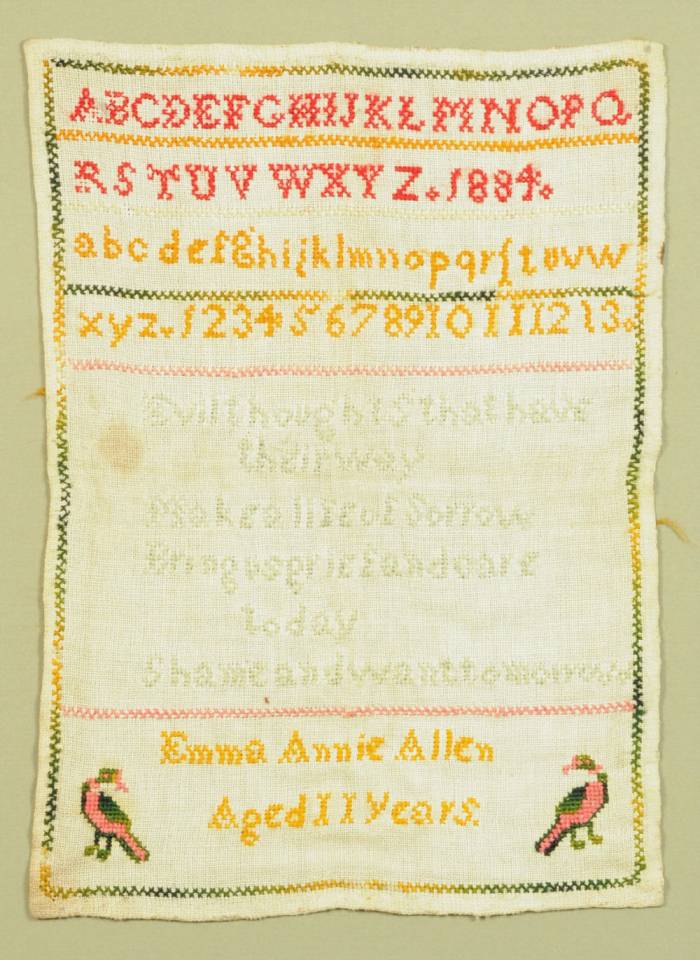 ABCDEFGHIJKLMNOPQ
RSTUVWXYZ.1884.
abcdefghijklmnopqrſtuvw
xyz.12345678910111213.
Evil thoughts that have
their way
Make a life of Sorrow
Bring us grief and care
today
Shame and want tomorrow
Emma Annie Allen
Aged 11 years.